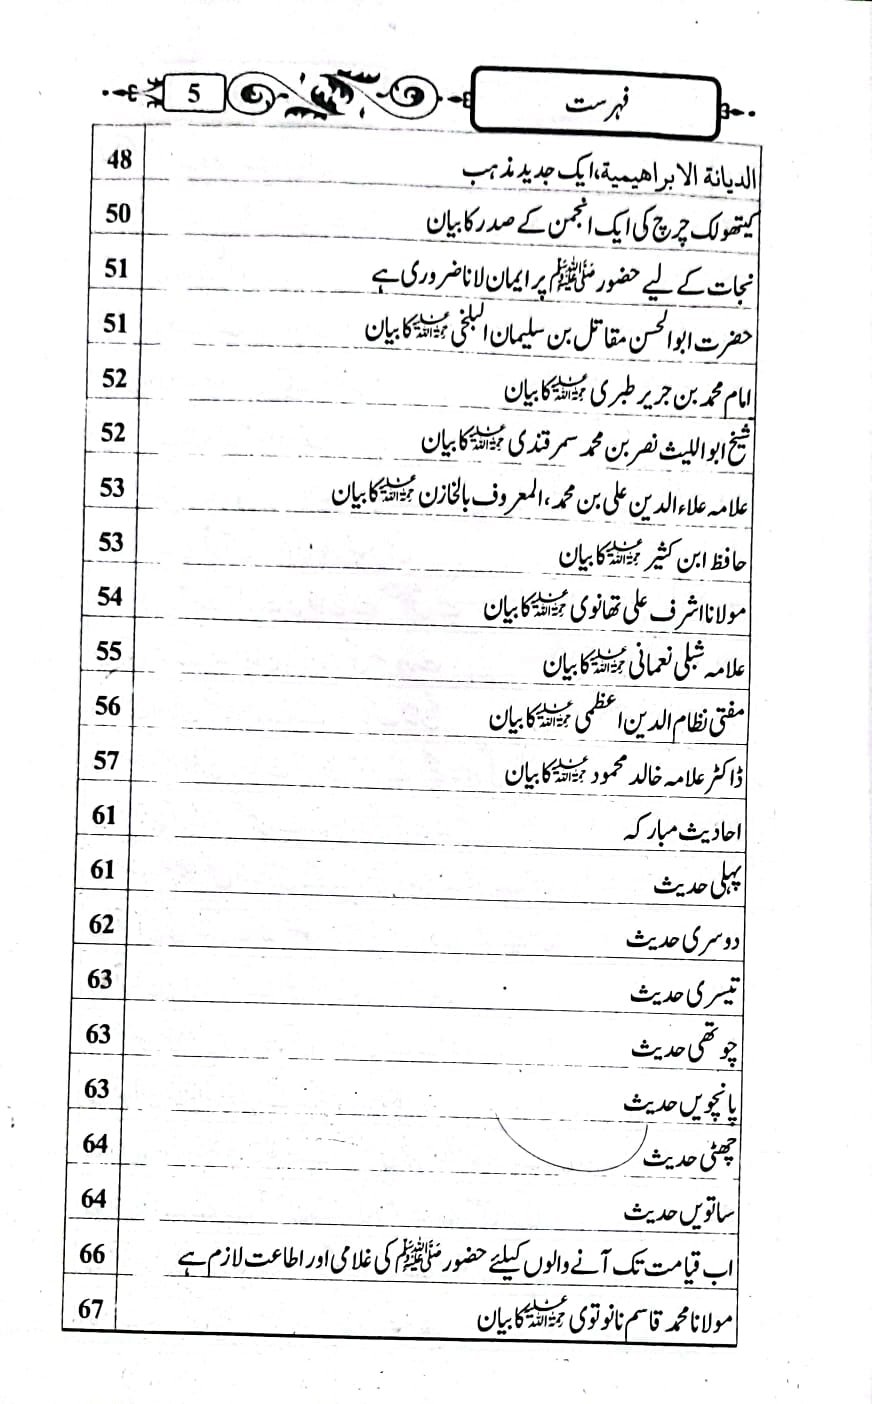 فہرست 5
الدیانة الابراھیمیة، ایک جدید مذہب 48
کیتھولک چرچ کی ایک انجمن کے صدر کا بیان 50
نجات کے لیے حضور ﷺ پر ایمان لانا ضروری ہے 51
حضرت ابوالحسن مقاتل بن سلیمان البلخی رحمۃ اللہ علیہ کا بیان 51
امام محمد بن جریر طبری رحمۃ اللہ علیہ کا بیان 52
شیخ ابواللیث نصر بن محمد سمرقندی رحمۃ اللہ علیہ کا بیان 52
علامہ علاء الدین علی بن محمد، المعروف بالخازن رحمۃ اللہ علیہ کا بیان 53
حافظ ابن کثیر رحمۃ اللہ علیہ کا بیان 53
مولانا اشرف علی تھانوی رحمۃ اللہ علیہ کا بیان 54
علامہ شبلی نعمانی رحمۃ اللہ علیہ کا بیان 55
مفتی نظام الدین اعظمی رحمۃ اللہ علیہ کا بیان 56
ڈاکٹر علامہ خالد محمود رحمۃ اللہ علیہ کا بیان 57
احادیث مبارکہ 61
پہلی حدیث 61
دوسری حدیث 62
تیسری حدیث 63
چوتھی حدیث 63
پانچویں حدیث 63
چھٹی حدیث 64
ساتویں حدیث 64
اب قیامت تک آنے والوں کیلئے حضور ﷺ کی غلامی اور اطاعت لازم ہے 66
مولانا محمد قاسم نانوتوی رحمۃ اللہ علیہ کا بیان 67